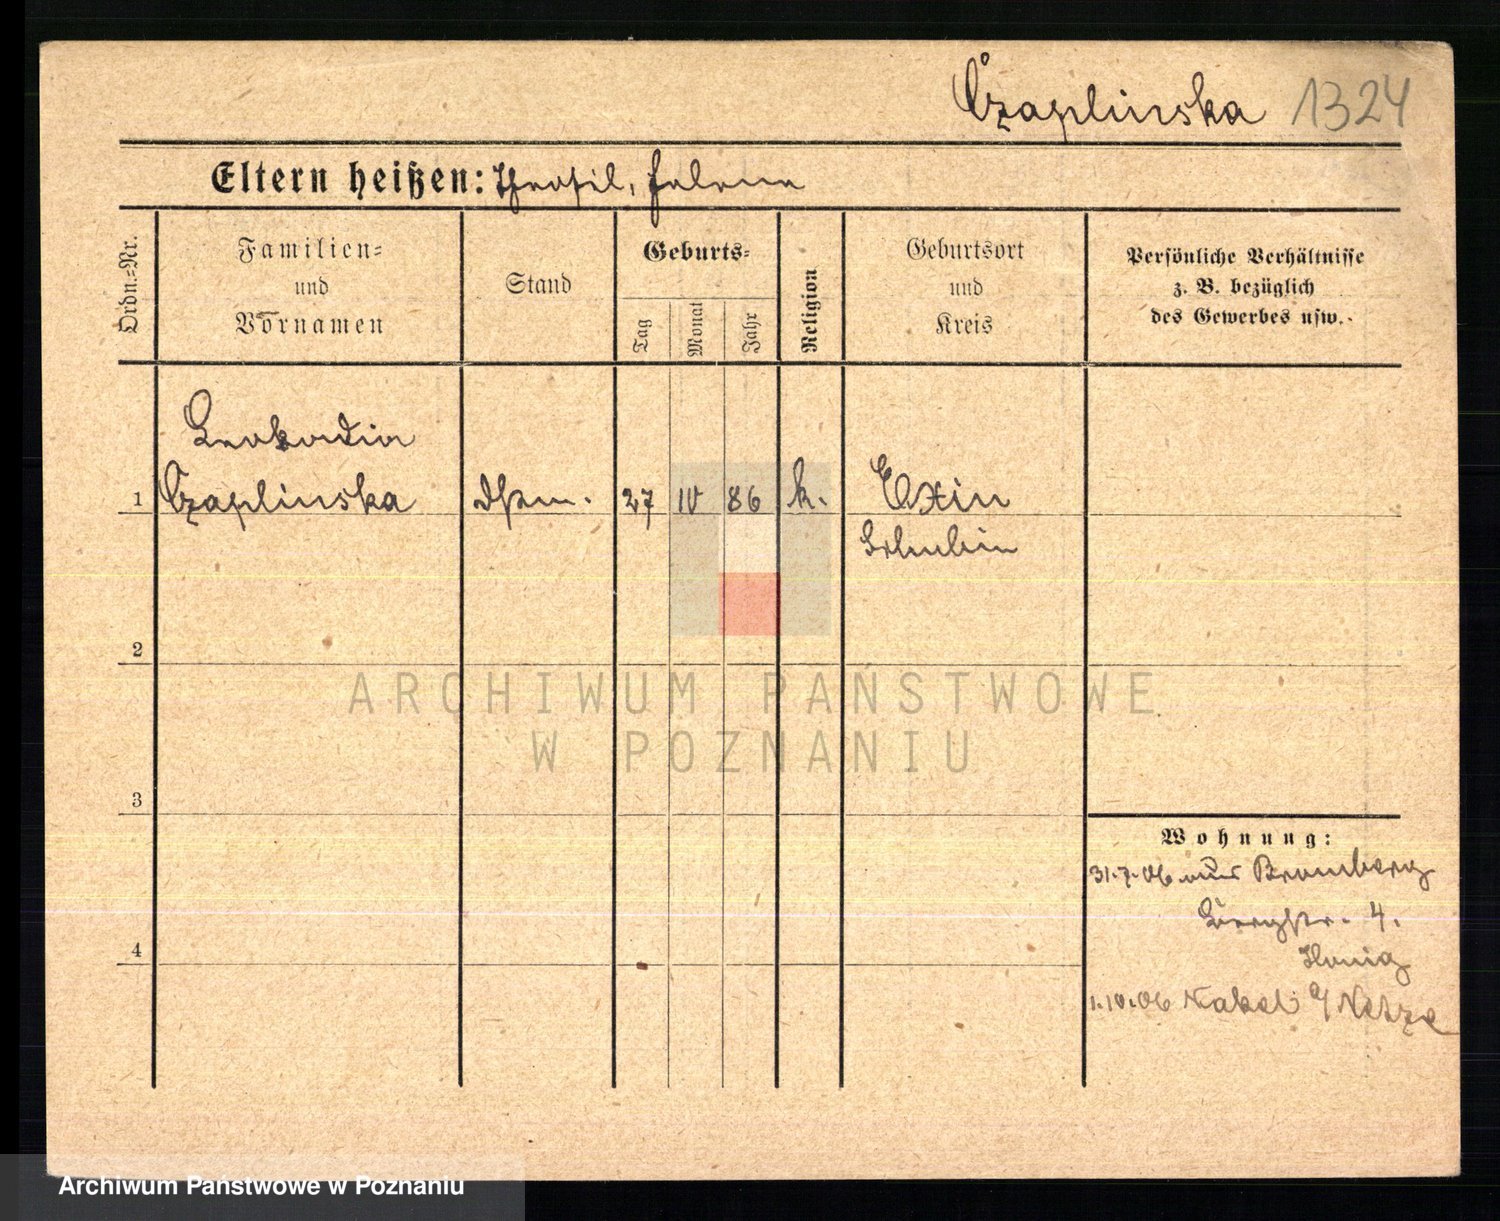 Czaplinska 1324
Eltern heißen: Theofil, Helena
Ordn.=Nr.
Familien=
und
Vornamen
Stand
Geburts=
Tag
Monat
Jahr
Religion
Geburtsort
und
Kreis
Persönliche Verhältnisse
z. B. bezüglich
des Gewerbes usw.
Leokadia
1 Czaplinska 27 IV 86 k. Exin
Schubin
2
ARCHIWUM PAŃSTWOWE
W POZNANIU
3
Wohnung:
31.7.06 aus Bromberg
4.
Honig
4
1.10.06 Nakel a/Netze
Archiwum Państwowe w Poznaniu